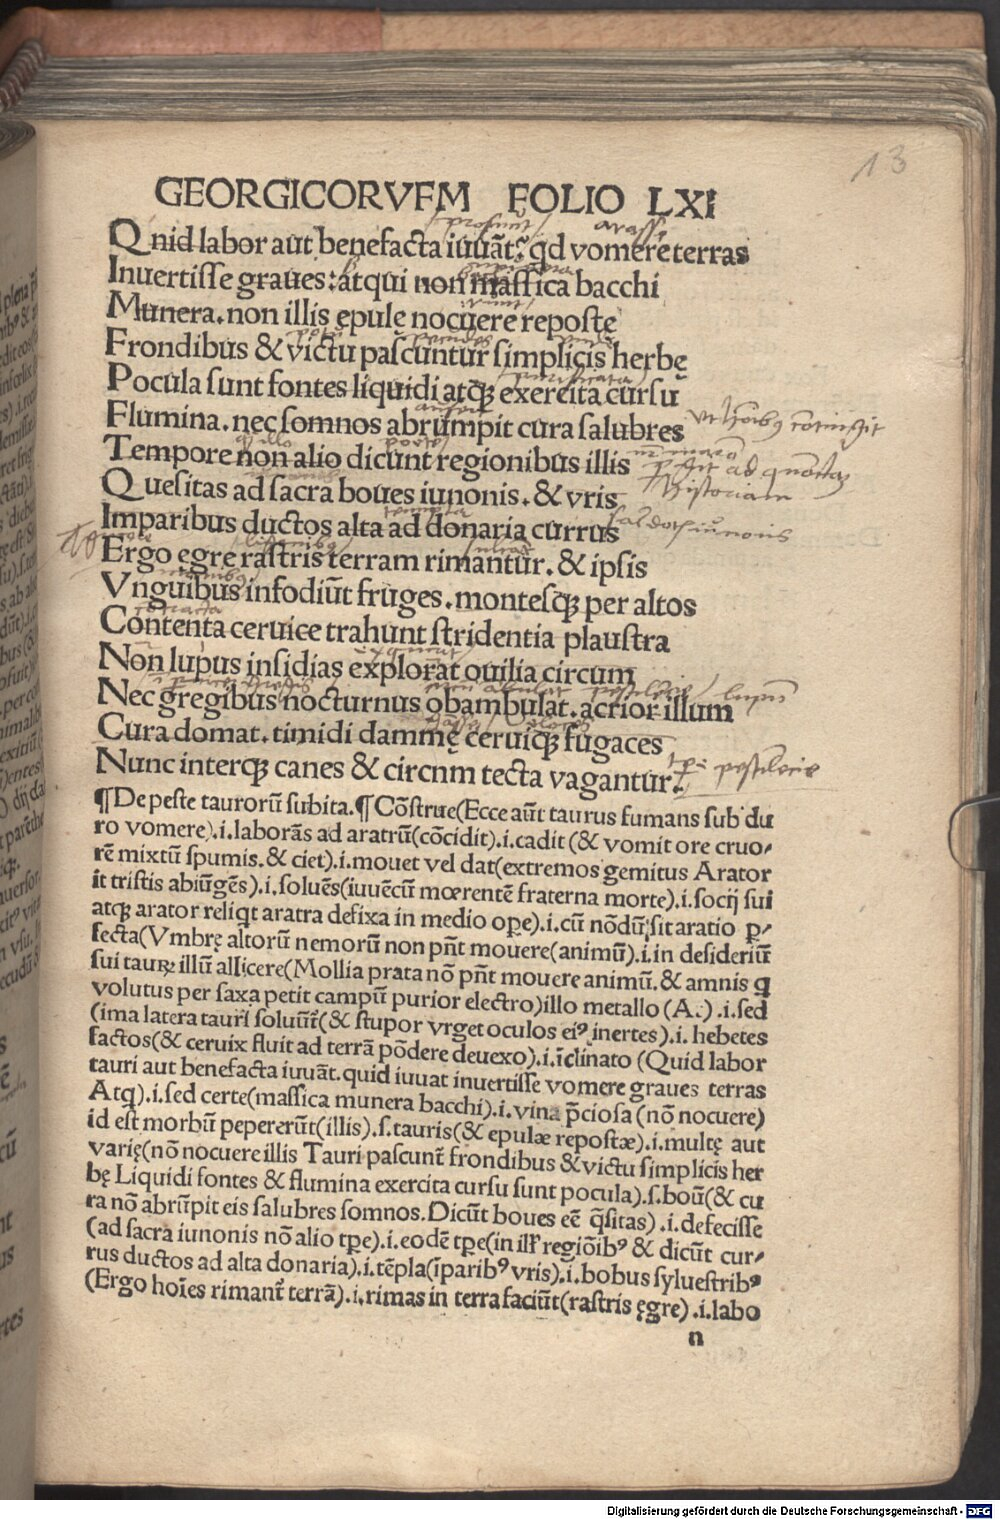 13
GEORGICORVFM FOLIO LXI
Qnid labor aut benefacta iuuāt? qd vomere terras
Inuertisse graues: atqui non massica bacchi
Munera. non illis epulę nocuere repostę
Frondibus & victu pascuntur simplicis herbę
Pocula sunt fontes liquidi atqꝫ exercita cursū
Flumina. nec somnos abrumpit cura salubres
Tempore non alio dicunt regionibus illis
Quesitas ad sacra boues iunonis. & vris
Imparibus ductos alta ad donaria currus
Ergo egre rastris terram rimantur. & ipsis
Vnguibus infodiūt fruges. montesqꝫ per altos
Contenta ceruice trahunt stridentia plaustra
Non lupus insidias explorat ouilia circum
Nec gregibus nocturnus obambulat. acrior illum
Cura domat. timidi dammę ceruiqꝫ fugaces
Nunc interqꝫ canes & circnm tecta vagantur.
¶De peste taurorū subita. ¶Cōstrue(Ecce aūt taurus fumans sub du
ro vomere).i.laborās ad aratrū(cōcidit).i.cadit (& vomit ore cruo-
rē mixtū spumis.& ciet).i.mouet vel dat(extremos gemitus Arator
it tristis abiūgēs).i.soluēs(iuuēcū mœrentē fraterna morte).i.socij sui
atqꝫ arator reliqt aratra defixa in medio opе).i.cū nōdū sit aratio ꝑ-
fecta(Vmbrę altorū nemorū non pn̄t mouere(animū).i.in desideriū
sui tauꝝ illū allicere(Mollia prata nō pn̄t mouere animū.& amnis q
volutus per saxa petit campū purior electro)illo metallo (At).i.sed
(ima latera tauri soluūt(& stupor vrget oculos eiꝰ inertes).i. hebetes
factos(& ceruix fluit ad terrā pōdere deuexo).i.īclinato (Quid labor
tauri aut benefacta iuuāt.quid iuuat inuertisse vomere graues terras
Atq).i.sed certe(massica munera bacchi).i.vina p̄ciosa (nō nocuere)
id est morbū pepererūt(illis).s.tauris(& epulæ repostæ).i.multę aut
varię(nō nocuere illis Tauri pascunt frondibus & victu simplicis her
bę Liquidi fontes & flumina exercita cursu sunt pocula).s.boū(& cu
ra nō abrūpit eis salubres somnos. Dicūt boues eē q̄sitas).i.defecisse
(ad sacra iunonis nō alio tpe).i.eodē tpe(in ill' regiōibꝰ & dicūt cur-
rus ductos ad alta donaria).i.tēpla(īparibꝰ vris).i.bobus syluestribꝰ
(Ergo hoīes rimant terrā).i.rimas in terra faciūt(rastris ęgre).i.labo
n
Digitalisierung gefördert durch die Deutsche Forschungsgemeinschaft - DFG